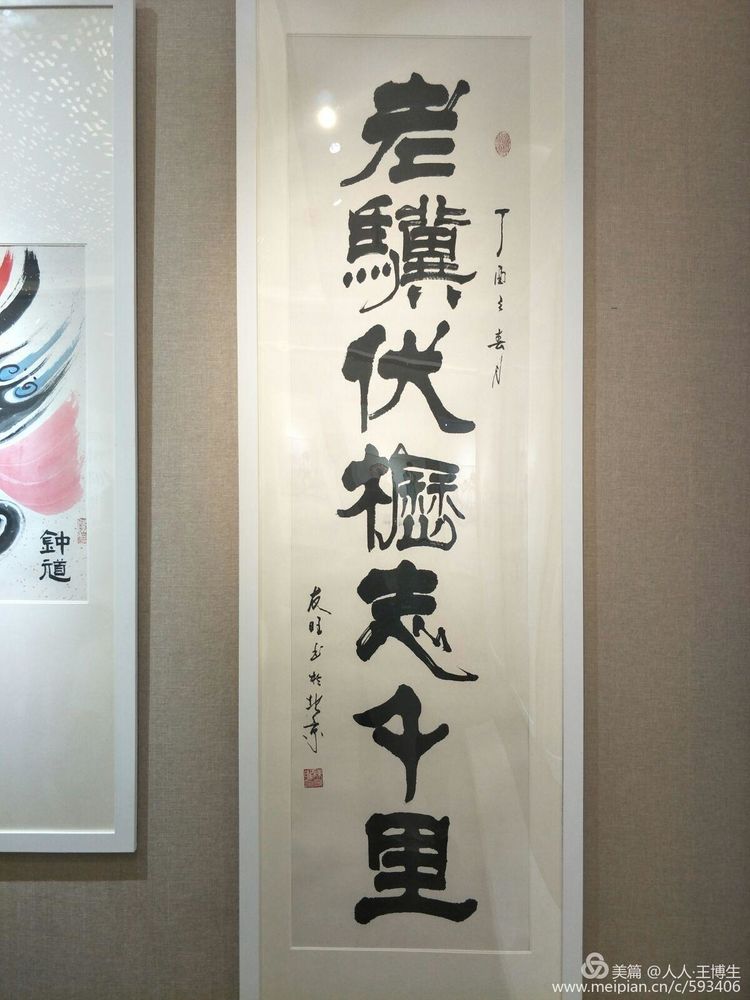 老驥伏櫪志千里
丁酉之春月
友旺书於北京
鈡馗
美篇 @人人·王博生
www.meipian.cn/c/593406